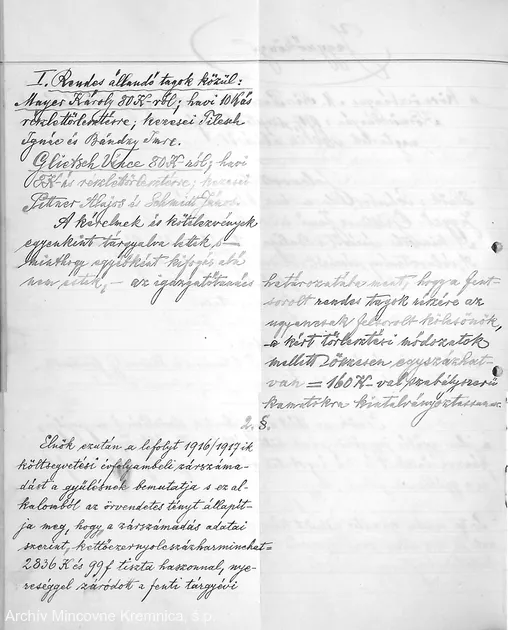 I. Rendes állandó tagok közül:
Mayer Károly 80 K-ról; havi 10 K-ás
részlettörlesztésre; kezesei Pilesh
Ignác és Bándzy Imre.
Glietsch Vince 80 K-ról; havi
K-ás részlettörlesztésre; kezesei
Pittner Alajos és Schmidt János.
A kérelmek és kötelezvények
egyenkint tárgyalva lettek, s —
minthogy egyikként kifogás alá
nem estek, — az igazgatótanács
határozatába ment, hogy a fent-
sorolt rendes tagok részére az
ugyancsak felsorolt kölcsönök,
a kért törlesztési módozatok
mellett összesen, egyszázhat-
van = 160 K-val szabályszerű
kamatokra kiutalványoztassanak.
2. §.
Elnök ezután a lefolyt 1916/1917 ik
költségvetési évfolyambeli zárszáma-
dást a gyűlésnek bemutatja s ez al-
kalomból az örvendetes tényt állapít-
ja meg, hogy a zárszámadás adatai
szerint, kettőezernyolcszázharminchat =
2836 K és 99 f tiszta haszonnal, nye-
reséggel záródott a fenti tárgyévi
Archív Mincovne Kremnica, š.p.